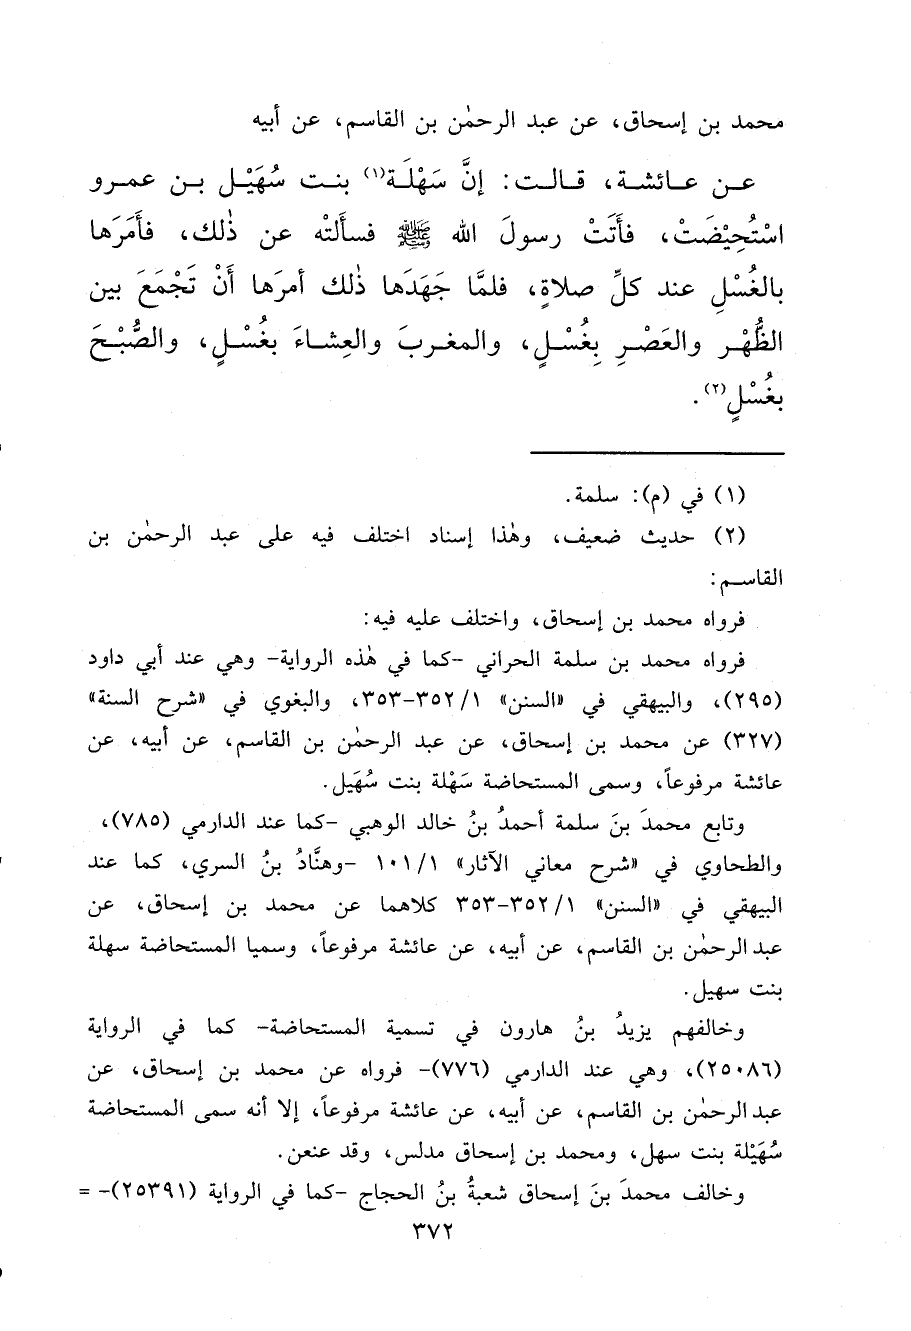 محمد بن إسحاق، عن عبد الرحمٰن بن القاسم، عن أبيه
عن عائشة، قالت: إنَّ سَهْلَة(١) بنت سُهَيْل بن عمرو
اسْتُحِيْضَتْ، فأَتَتْ رسولَ الله ﷺ فسألتْه عن ذٰلك، فأَمَرَها
بالغُسْلِ عند كلِّ صلاةٍ، فلمَّا جَهَدَها ذٰلك أمرَها أَنْ تَجْمَعَ بين
الظُّهْرِ والعَصْرِ بِغُسْلٍ، والمغربَ والعِشاءَ بغُسْلٍ، والصُّبْحَ
بغُسْلٍ(٢).
(١) في (م): سلمة.
(٢) حديث ضعيف، وهٰذا إسناد اختلف فيه على عبد الرحمٰن بن
القاسم:
فرواه محمد بن إسحاق، واختلف عليه فيه:
فرواه محمد بن سلمة الحراني -كما في هٰذه الرواية- وهي عند أبي داود
(٢٩٥)، والبيهقي في «السنن» ٣٥٢/١-٣٥٣، والبغوي في «شرح السنة»
(٣٢٧) عن محمد بن إسحاق، عن عبد الرحمٰن بن القاسم، عن أبيه، عن
عائشة مرفوعاً، وسمى المستحاضة سَهْلة بنت سُهَيل.
وتابع محمدَ بنَ سلمة أحمدُ بنُ خالد الوهبي -كما عند الدارمي (٧٨٥)،
والطحاوي في «شرح معاني الآثار» ١٠١/١ -وهنَّادُ بنُ السري، كما عند
البيهقي في «السنن» ٣٥٢/١-٣٥٣ كلاهما عن محمد بن إسحاق، عن
عبد الرحمٰن بن القاسم، عن أبيه، عن عائشة مرفوعاً، وسميا المستحاضة سهلة
بنت سهيل.
وخالفهم يزيدُ بنُ هارون في تسمية المستحاضة- كما في الرواية
(٢٥٠٨٦)، وهي عند الدارمي (٧٧٦)- فرواه عن محمد بن إسحاق، عن
عبد الرحمٰن بن القاسم، عن أبيه، عن عائشة مرفوعاً، إلا أنه سمى المستحاضة
سُهَيْلة بنت سهل، ومحمد بن إسحاق مدلس، وقد عنعن.
وخالف محمدَ بنَ إسحاق شعبةُ بنُ الحجاج -كما في الرواية (٢٥٣٩١)- =
٣٧٢